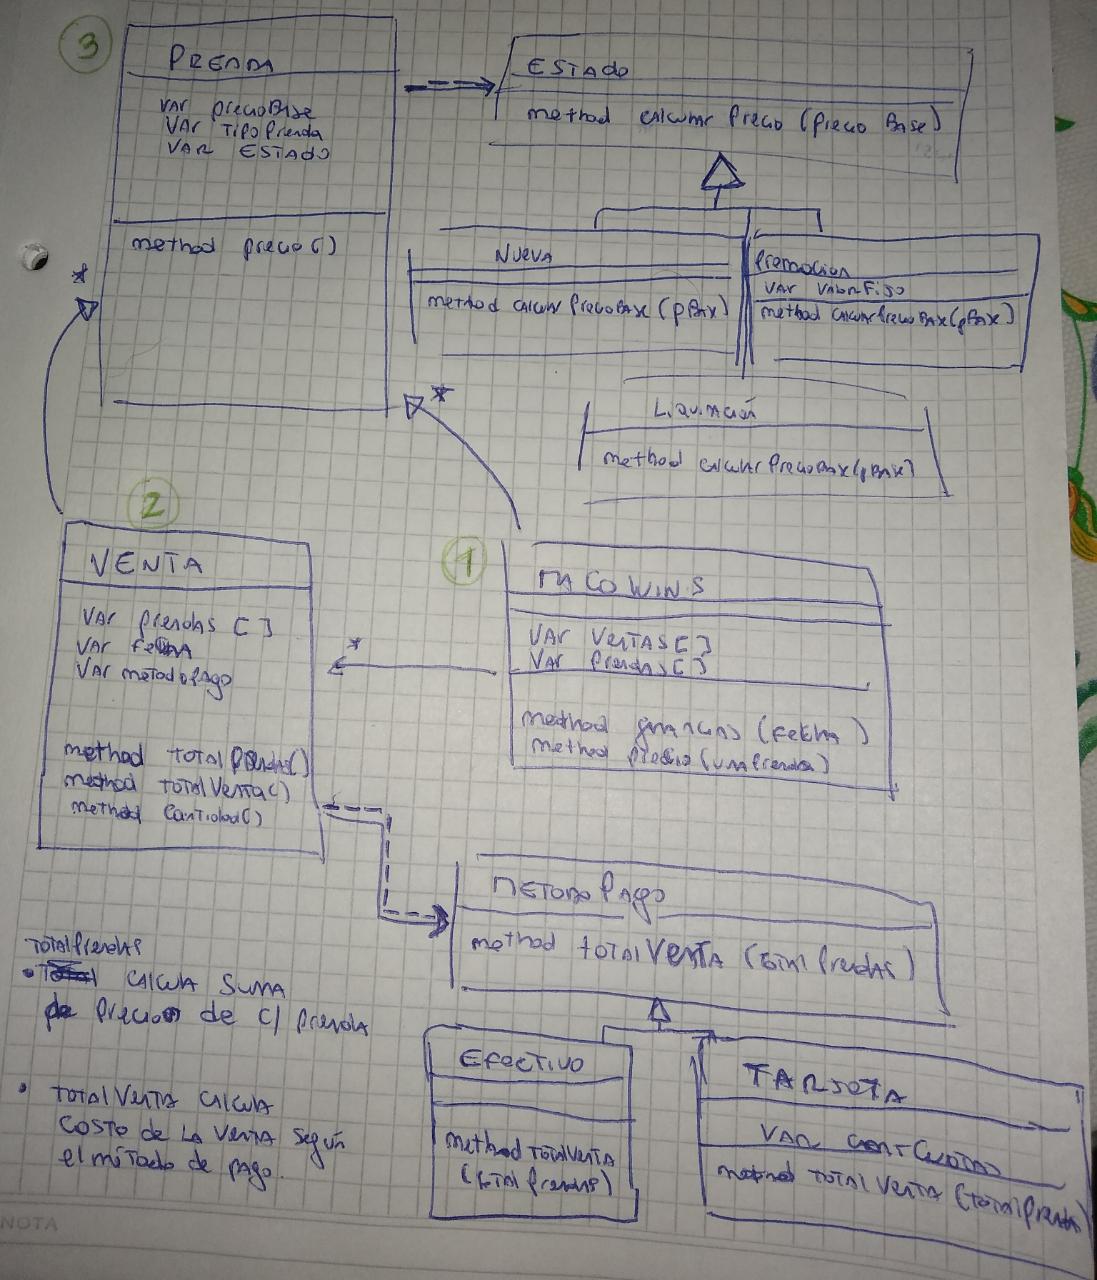 3
PRENDA
VAR precioBase
VAR TipoPrenda
VAR ESTADO
method precio()
*
ESTADO
method calcular Precio (precio Base)
NUEVA
method calcular PrecioBase (pBase)
Promocion
VAR ValorFijo
method calcularPrecioBase(pBase)
Liquidación
method calcular PrecioBase(pBase)
*
2
VENTA
VAR prendas []
VAR fecha
VAR metodoPago
method TOTAL prendas()
method TOTALVenta()
method Cantidad()
1
MACOWINS
VAR VENTAS []
VAR Prendas []
method ganancias (Fecha)
method precio (unaPrenda)
*
METODO Pago
method TOTAL VENTA (total prendas)
EFECTIVO
method TOTALVENTA
(total prendas)
TARJETA
VAR cantCuotas
method TOTAL VENTA (total prendas)
TOTALPrendas
• CALCULA SUMA
de precio de c/ prenda
• TOTAL VENTA CALCULA
COSTO DE LA VENTA según
el método de pago.
NOTA